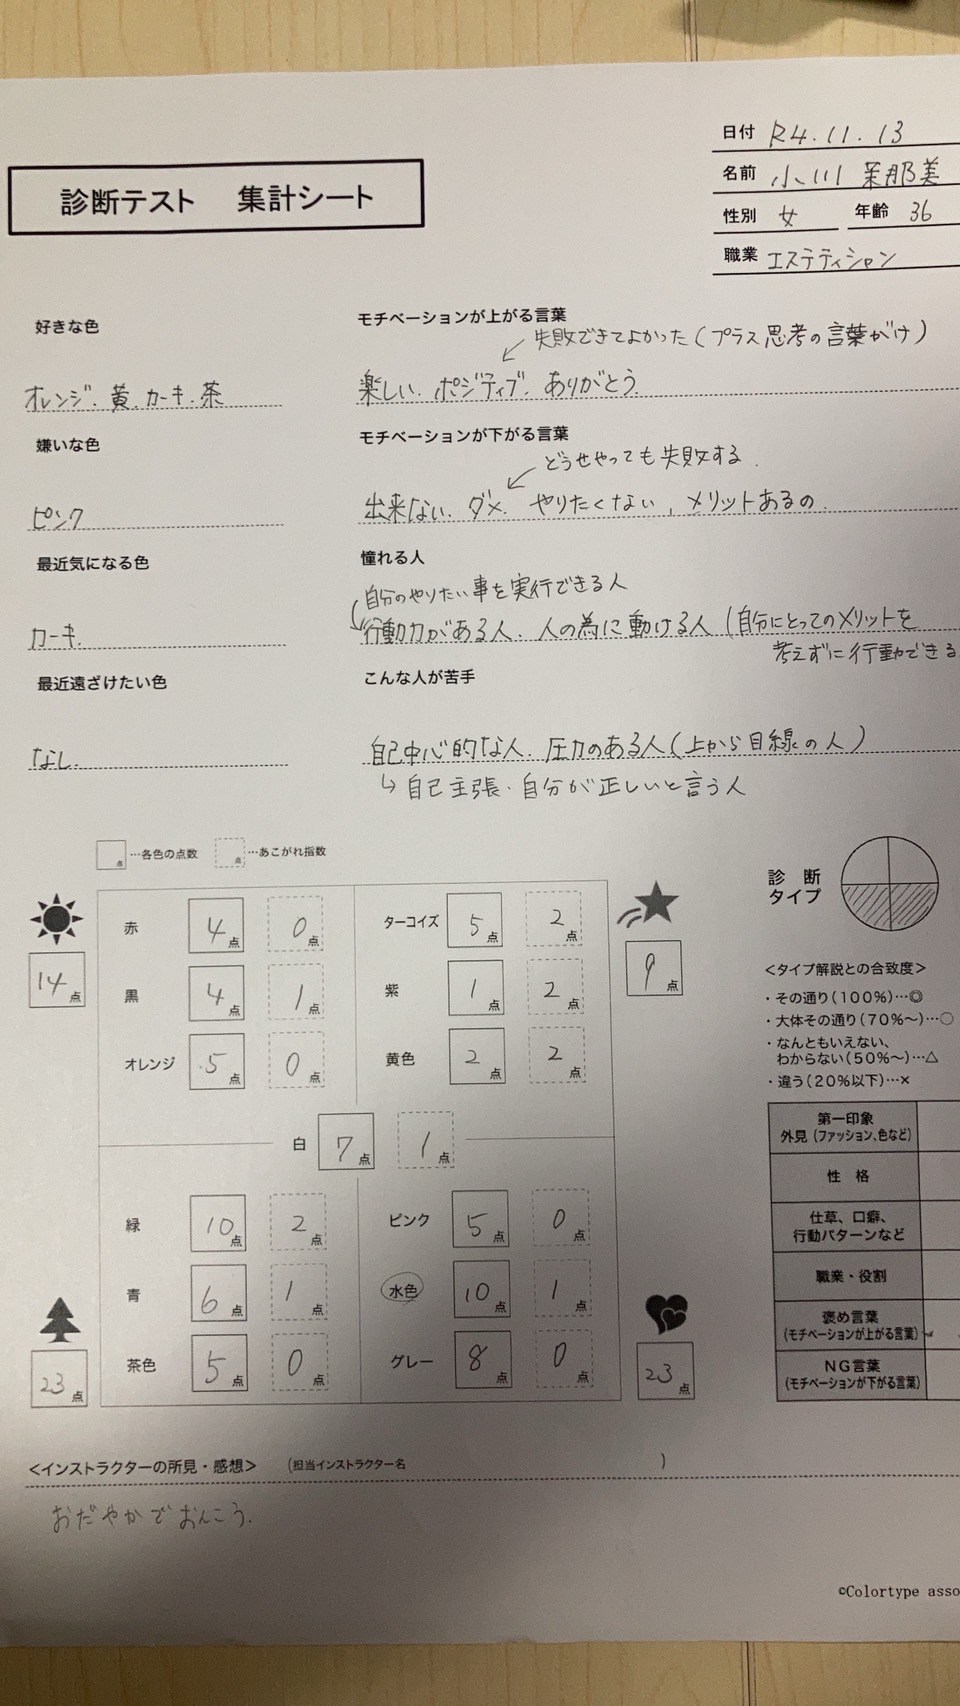 日付 R4.11.13
診断テスト 集計シート
名前 小川 茉那美
性別 女 年齢 36
職業 エステティシャン
好きな色
オレンジ. 黄. カーキ. 茶
モチベーションが上がる言葉
失敗できてよかった(プラス思考の言葉がけ)
楽しい. ポジティブ. ありがとう.
嫌いな色
ピンク
モチベーションが下がる言葉
どうせやっても失敗する.
出来ない. ダメ. やりたくない, メリットあるの.
最近気になる色
カーキ.
憧れる人
自分のやりたい事を実行できる人
行動力がある人. 人の為に動ける人(自分にとってのメリットを
考えずに行動できる
最近遠ざけたい色
なし.
こんな人が苦手
自己中心的な人. 圧力のある人(上から目線の人)
↳自己主張・自分が正しいと言う人
点 …各色の点数 点 …あこがれ指数
診断
タイプ
14点
赤 4点 0点
黒 4点 1点
オレンジ 5点 0点
ターコイズ 5点 2点
紫 1点 2点
黄色 2点 2点
9点
白 7点 1点
緑 10点 2点
青 6点 1点
茶色 5点 0点
23点
ピンク 5点 0点
水色 10点 1点
グレー 8点 0点
23点
<タイプ解説との合致度>
・その通り(100%)…◎
・大体その通り(70%〜)…○
・なんともいえない、
わからない(50%〜)…△
・違う(20%以下)…×
第一印象
外見(ファッション、色など)
性 格
仕草、口癖、
行動パターンなど
職業・役割
褒め言葉
(モチベーションが上がる言葉)
NG言葉
(モチベーションが下がる言葉)
<インストラクターの所見・感想> (担当インストラクター名 )
おだやかでおんこう.
©Colortype asso